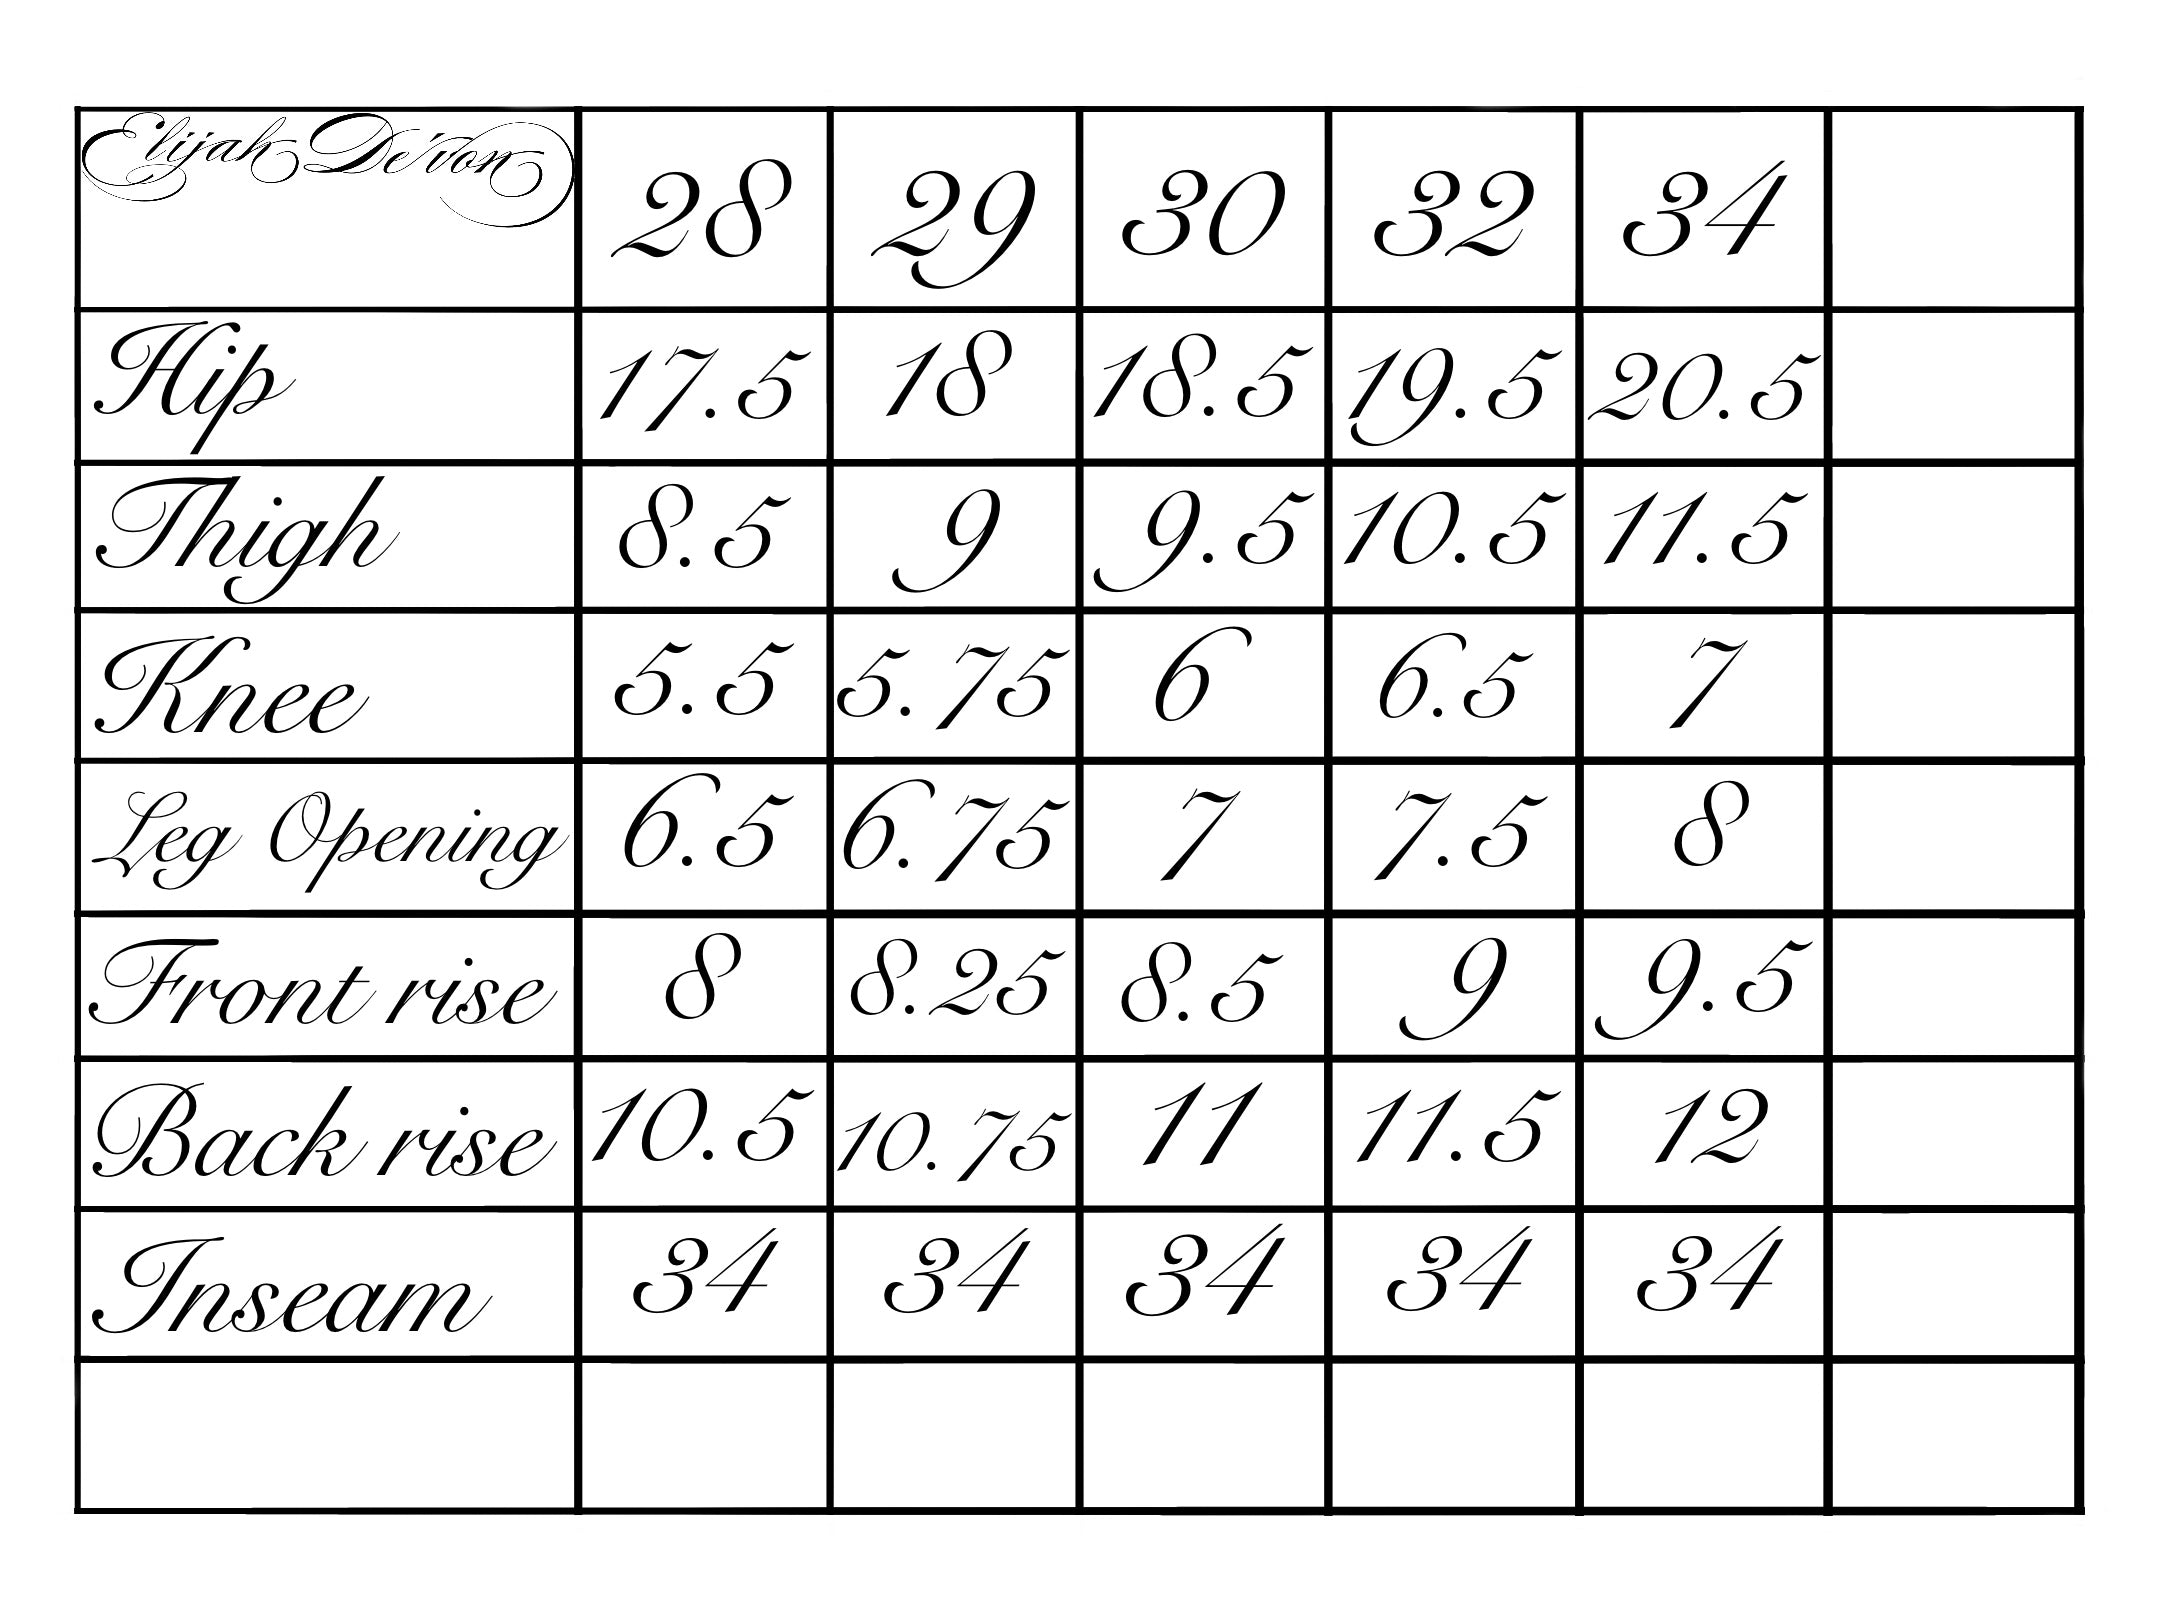 Elijah De'von 28 29 30 32 34
Hip 17.5 18 18.5 19.5 20.5
Thigh 8.5 9 9.5 10.5 11.5
Knee 5.5 5.75 6 6.5 7
Leg Opening 6.5 6.75 7 7.5 8
Front rise 8 8.25 8.5 9 9.5
Back rise 10.5 10.75 11 11.5 12
Inseam 34 34 34 34 34